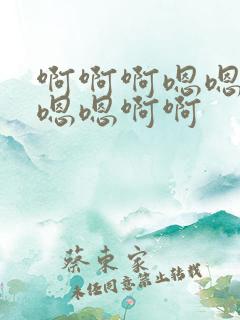 啊啊啊嗯嗯
嗯嗯啊啊
蔡東家
未经同意禁止转载